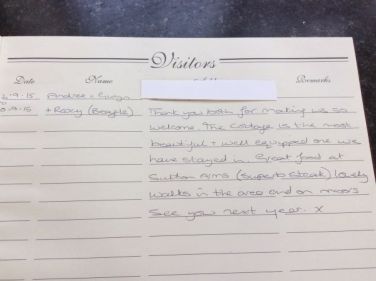 Visitors
Date Name Remarks
9.15 Andrea + 
9.15 + Roxy (Beagle) Thank you both for making us so
welcome. The Cottage is the most
beautiful + well equipped one we
have stayed in. Great food at
Sutton Arms (Superb Steak) lovely
walks in the area and on moors
See you next year. x